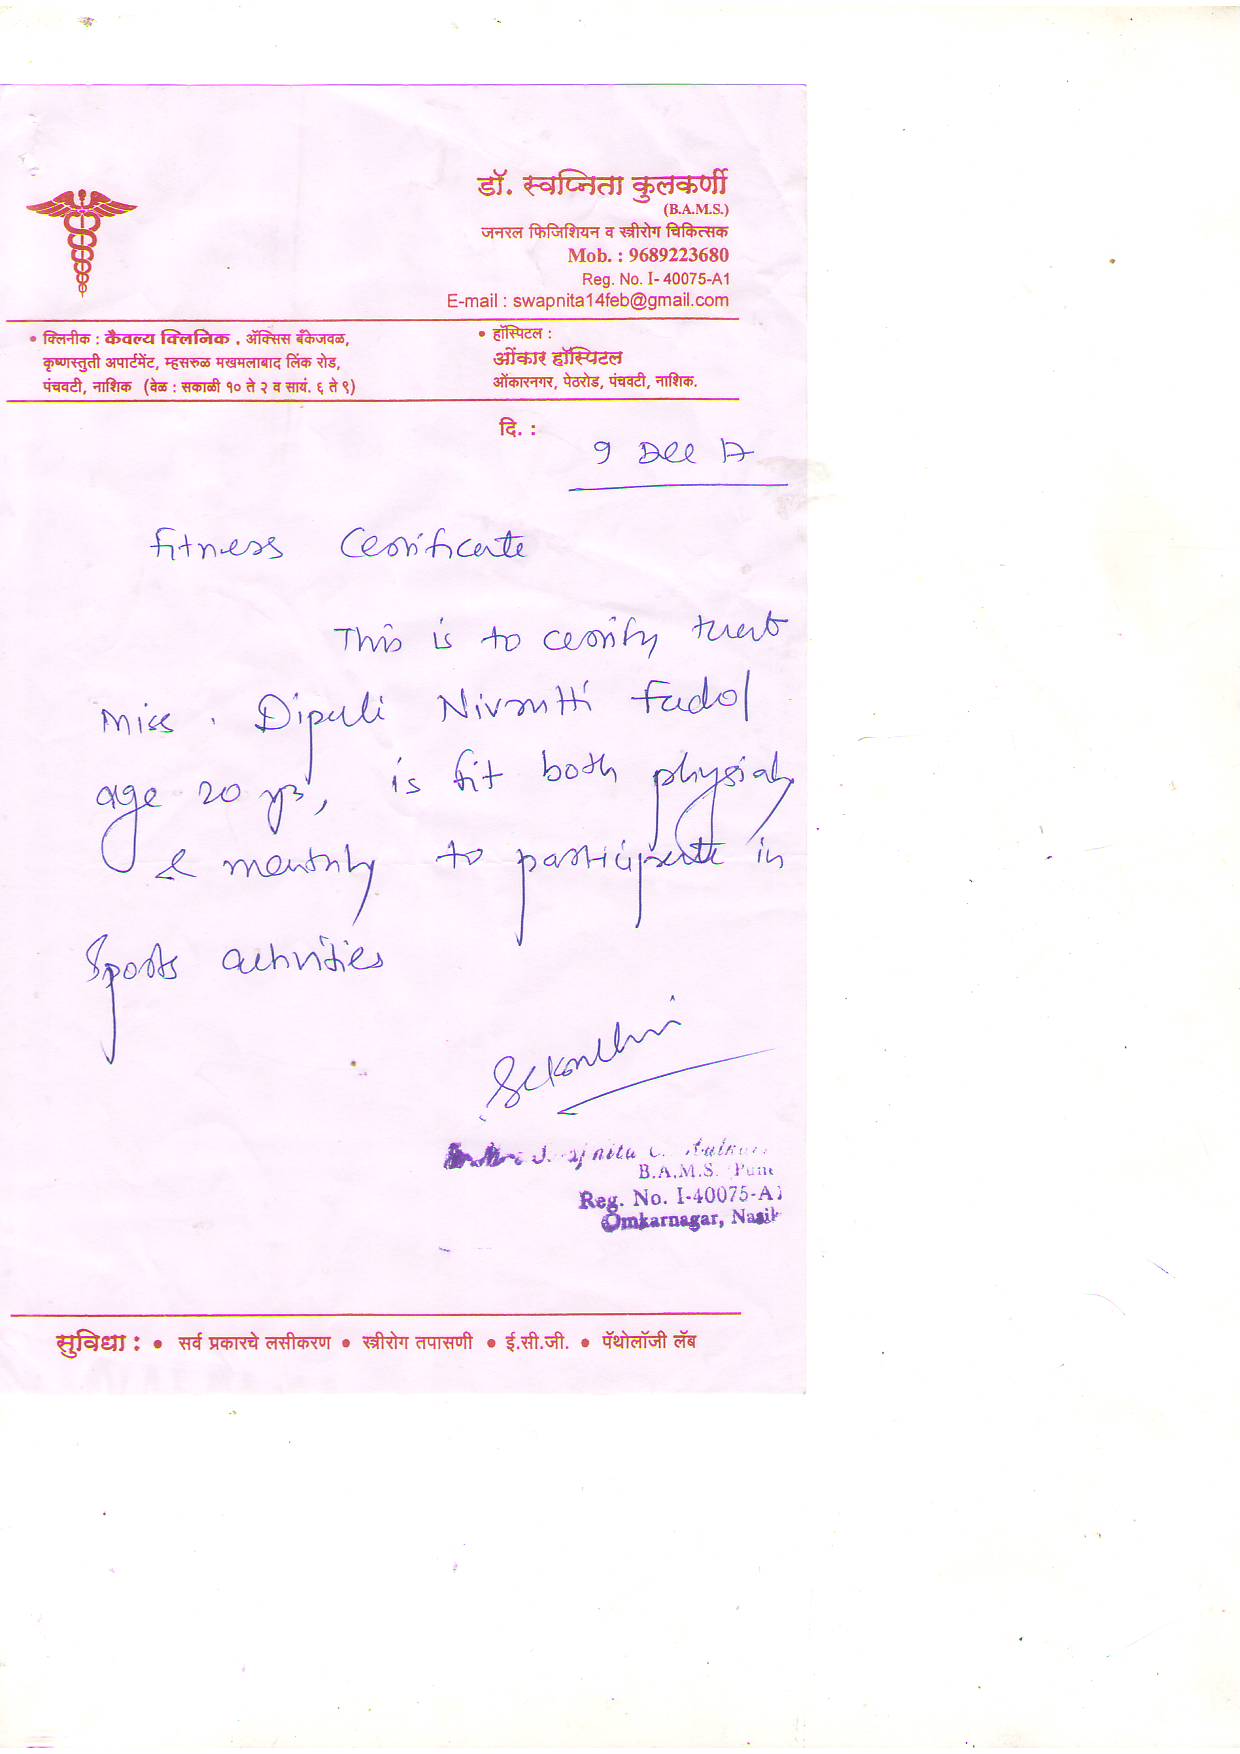 डॉ. स्वप्निता कुलकर्णी
(B.A.M.S.)
जनरल फिजिशियन व स्त्रीरोग चिकित्सक
Mob. : 9689223680
Reg. No. I- 40075-A1
E-mail : swapnita14feb@gmail.com
• क्लिनीक : कैवल्य क्लिनिक , ॲक्सिस बँकेजवळ,
कृष्णस्तुती अपार्टमेंट, म्हसरुळ मखमलाबाद लिंक रोड,
पंचवटी, नाशिक (वेळ : सकाळी १० ते २ व सायं. ६ ते ९)
• हॉस्पिटल :
ओंकार हॉस्पिटल
ओंकारनगर, पेठरोड, पंचवटी, नाशिक.
दि. :
9 Dec 17
Fitness Certificate
This is to certify that
Miss. Dipali Nivrutti Fadol
age 20 yrs, is fit both physicaly
& mentaly to participate in
Sports activities
B.A.M.S. Pune
Reg. No. I-40075-A1
Omkarnagar, Nasik
सुविधा : • सर्व प्रकारचे लसीकरण • स्त्रीरोग तपासणी • ई.सी.जी. • पॅथोलॉजी लॅब